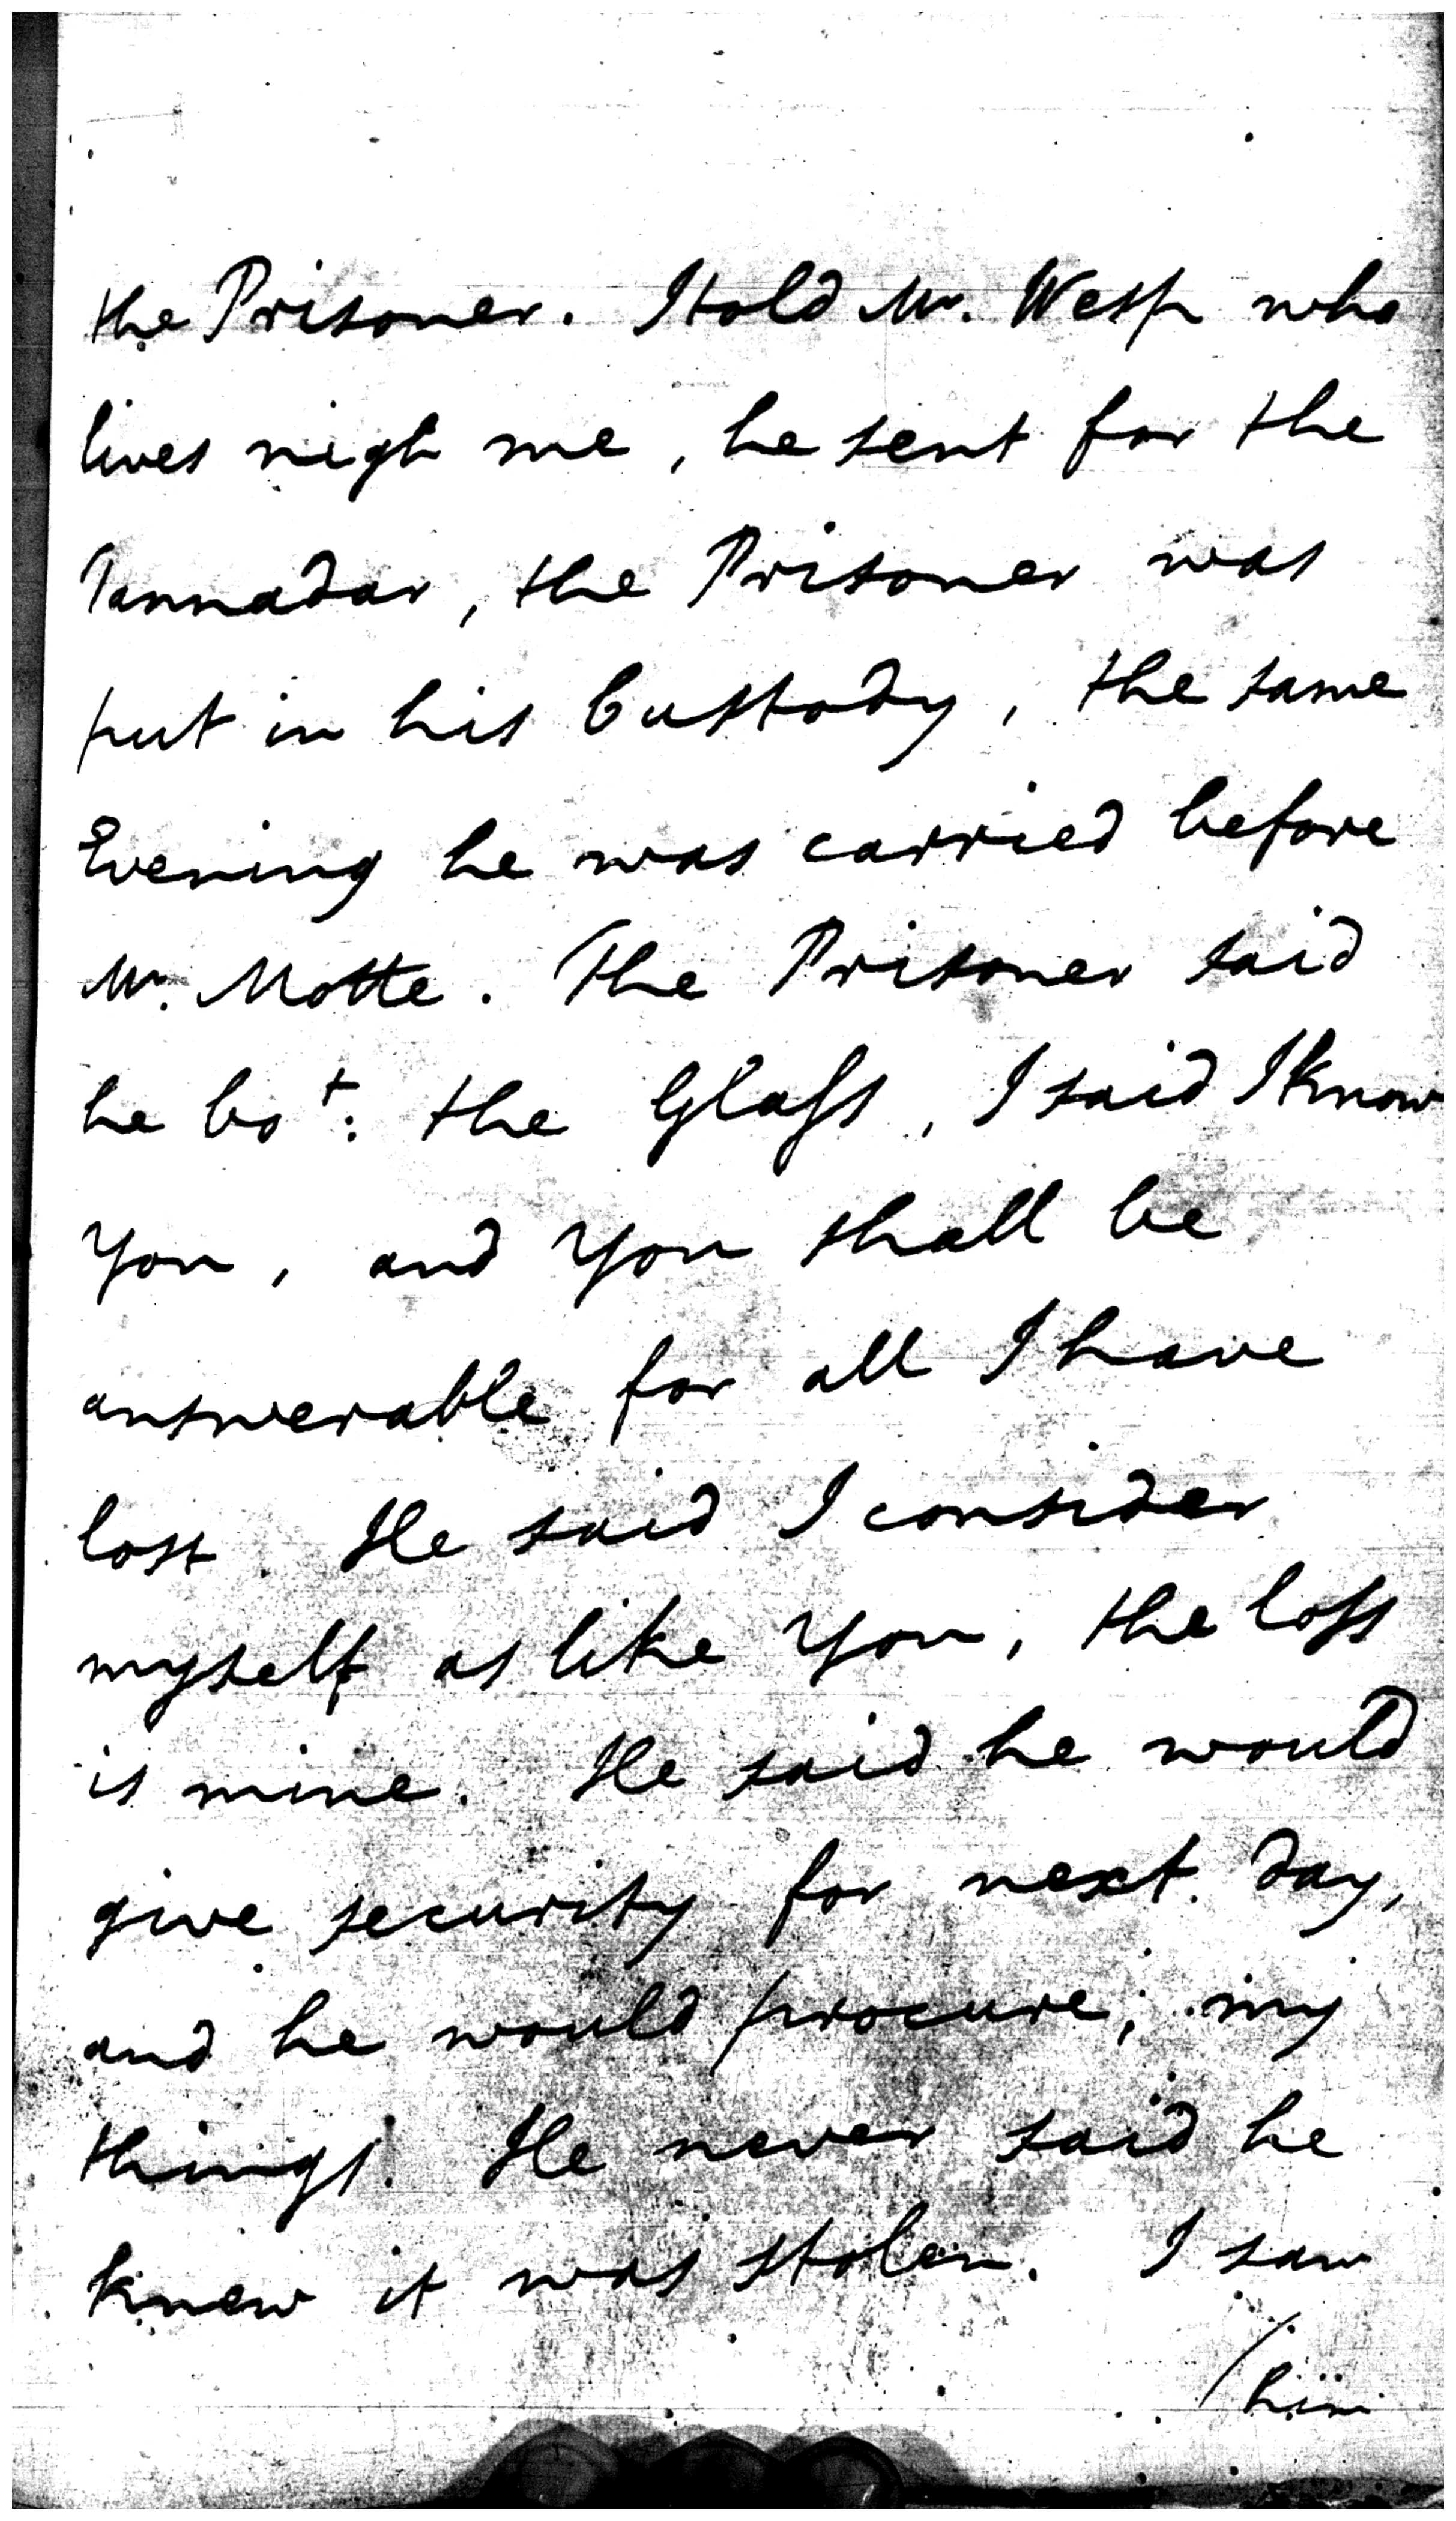 the Prisoner. I told Mr. Wesp who
lives nigh me, he sent for the
Tannadar, the Prisoner was
put in his Custody, the same
Evening he was carried before
Mr. Motte. The Prisoner said
he bot: the Glass, I said I know
You, and You shall be
answerable for all I have
lost. He said I consider
myself as like You, the loss
is mine. He said he would
give security for next day,
and he would procure; my
things. He never said he
knew it was stolen. I saw
/him